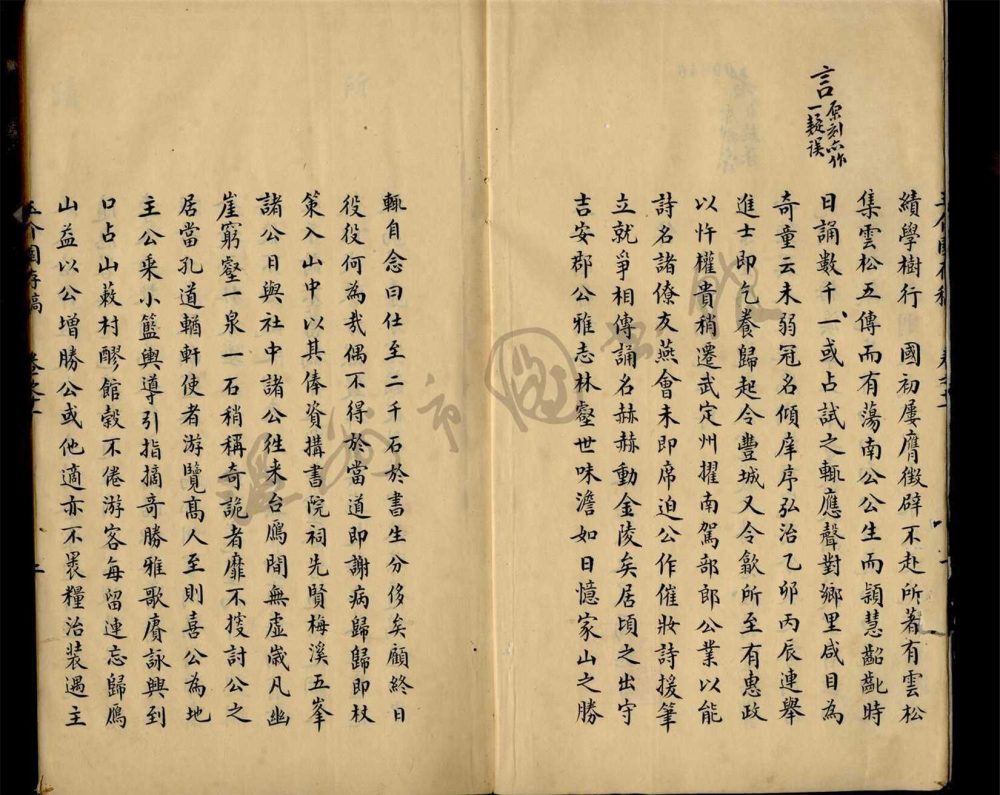 言
原刻亦作
一疑误
績學樹行國初屢膺徵辟不赴所著有雲松
集雲松五傳而有蕩南公公生而穎慧齠齔時
日誦數千一或占試之輒應聲對鄉里咸目為
奇童云未弱冠名傾庠序弘治乙卯丙辰連舉
進士即乞養歸起令豐城又令歙所至有惠政
以忤權貴稍遷武定州擢南駕部郎公業以能
詩名諸僚友燕會未即席迫公作催妝詩援筆
立就爭相傳誦名赫赫動金陵矣居頃之出守
吉安郡公雅志林壑世味澹如日憶家山之勝
輒自念曰仕至二千石於書生分侈矣顧終日
役役何為哉偶不得於當道即謝病歸歸即杖
策入山中以其俸資搆書院祠先賢梅溪五峯
諸公日與社中諸公徃来台鴈間無虛歲凡幽
崖窮壑一泉一石稍稱奇詭者靡不搜討公之
居當孔道輶軒使者游覽髙人至則喜公為地
主公乘小籃輿導引指摘奇勝雅歌賡詠興到
口占山蔌村醪館穀不倦游客每留連忘歸鴈
山益以公增勝公或他適亦不裹糧治装遇主